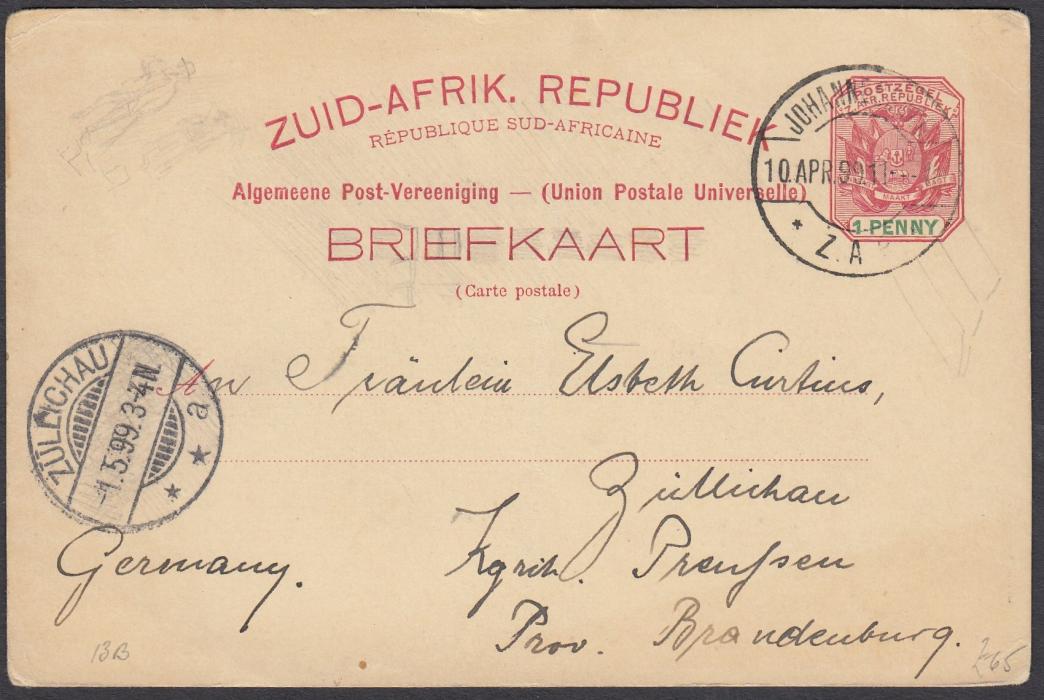 ZUID-AFRIK. REPUBLIEK
RÉPUBLIQUE SUD-AFRICAINE
Algemeene Post-Vereeniging — (Union Postale Universelle)
BRIEFKAART
(Carte postale)
POSTZEGEL
Z. AFR. REPUBLIEK
MAAKT
1-PENNY
JOHANNES
10.APR.99.11
* Z.A
ZÜLLICHAU
-1.5.99.3-4N.
* * a
An Fräulein Elsbeth Curtius,
Züllichau
Germany. Kgrch. Preußen
Prov. Brandenburg.
13B